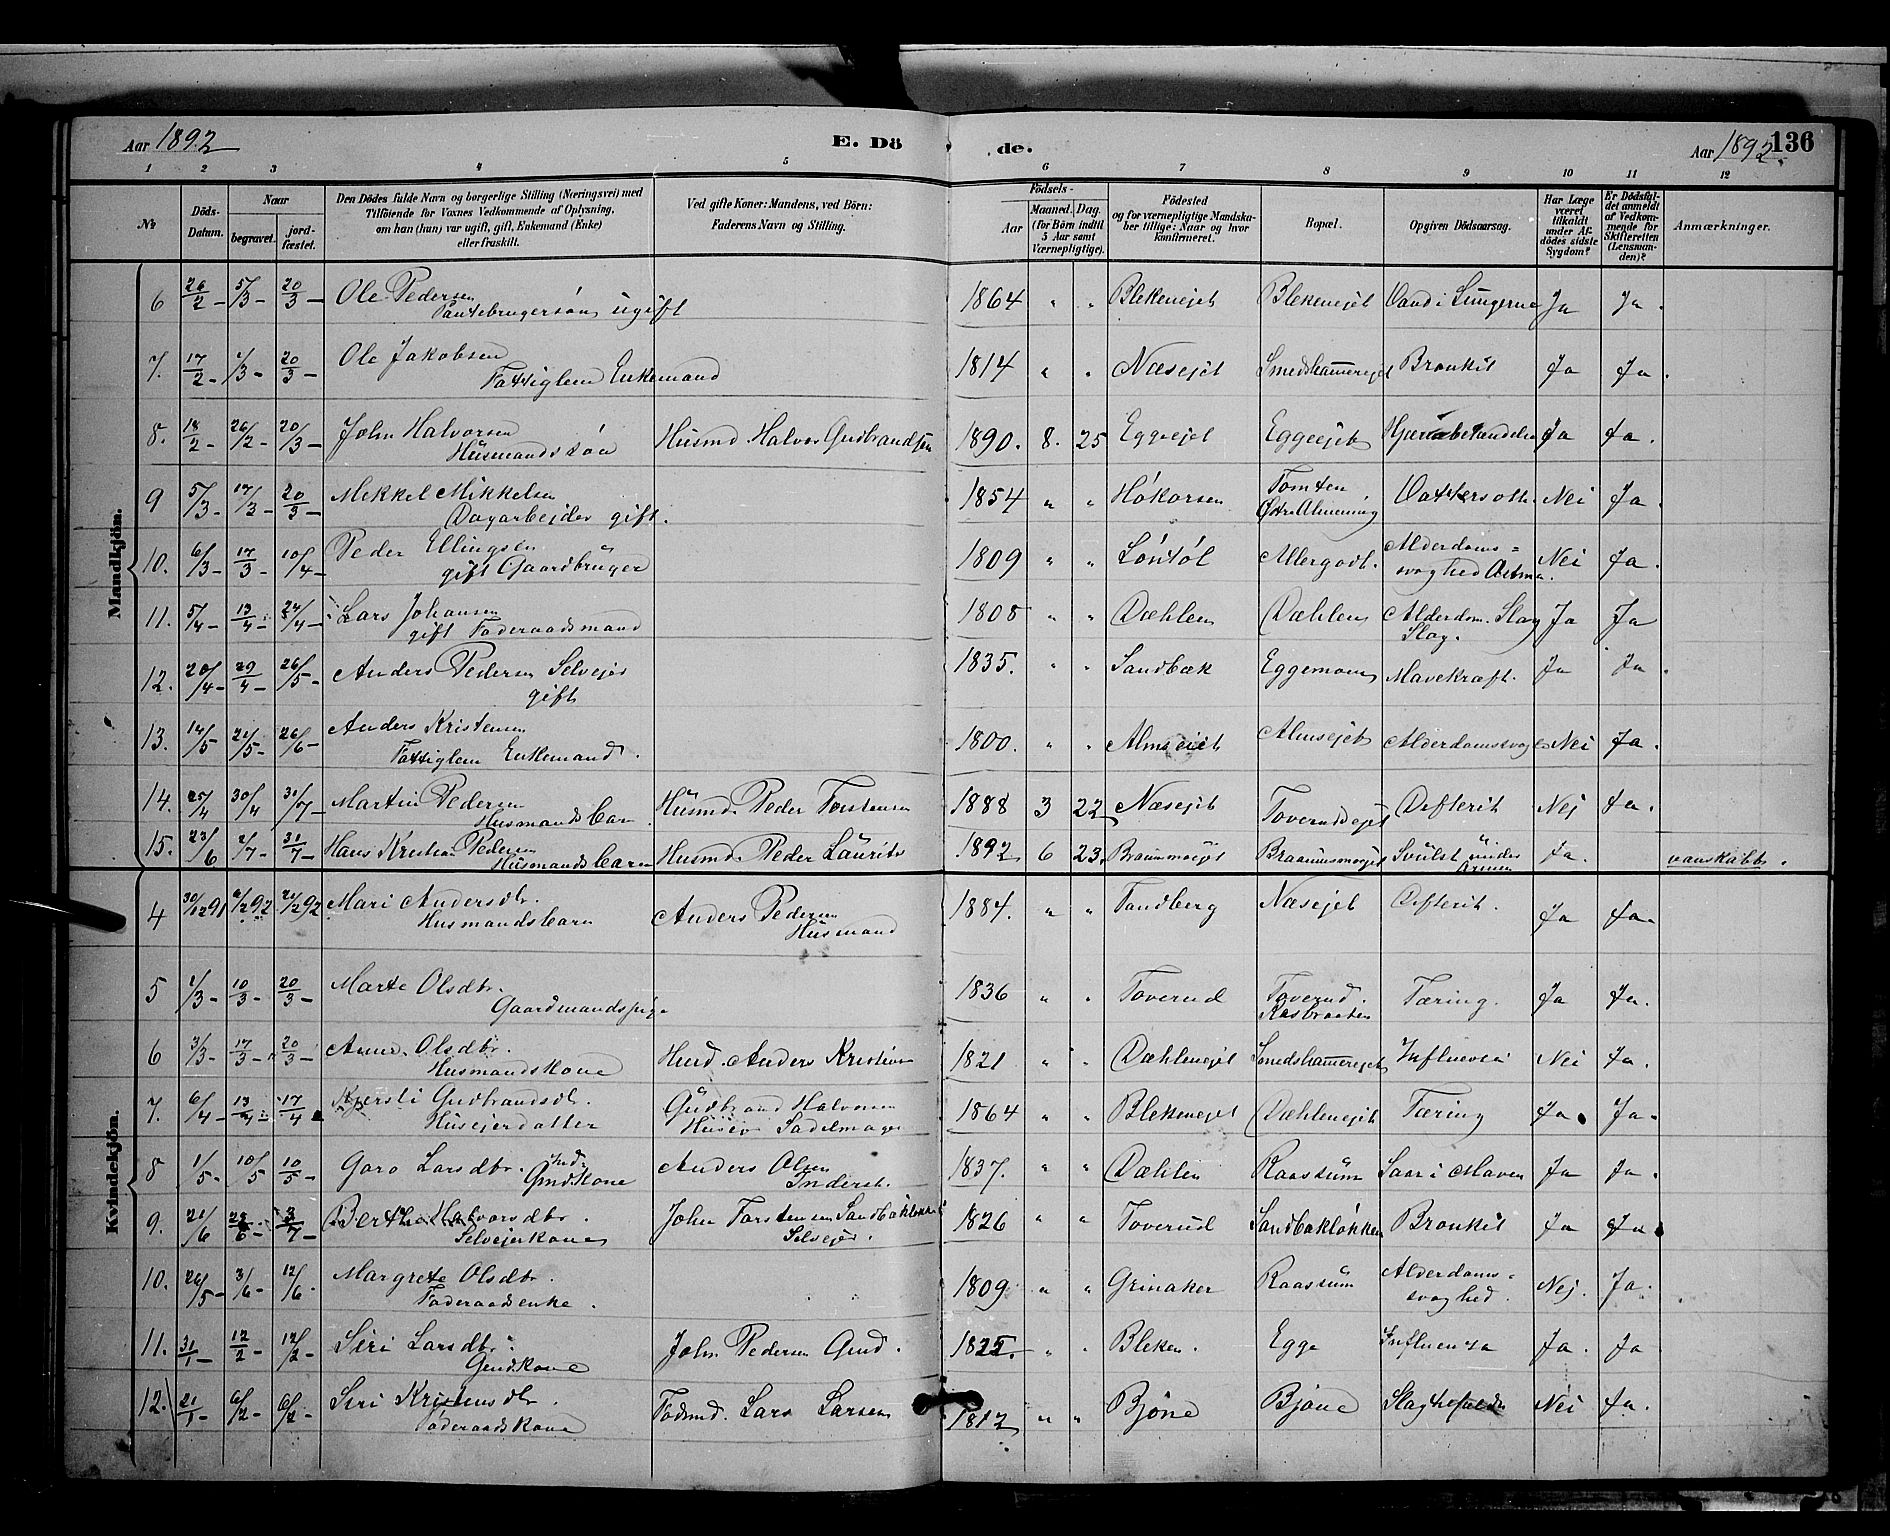 Aar 1892
E. Dö
de.
Aar 1892.
136
1 2 3 4 5 6 7 8 9 10 11 12
№
Döds-Datum.
Naar
begravet.
jord-fæstet.
Den Dödes fulde Navn og borgerlige Stilling (Næringsvei) med
Tilföiende for Voxnes Vedkommende af Oplysning,
om han (hun) var ugift, gift, Enkemand (Enke)
eller fraskilt.
Ved gifte Koner: Mandens, ved Börn:
Faderens Navn og Stilling.
Födsels-
Aar
Maaned. Dag.
(for Börn indtil
5 Aar samt
Værnepligtige).
Födested
og for værnepligtige Mandska-
ber tillige: Naar og hvor
konfirmeret.
Bopæl.
Opgiven Dödsaarsag.
Har Læge
været
tilkaldt
under Af-
dödes sidste
Sygdom?
Er Dödsfal-
det anmeldt
af Vedkom-
mende for
Skifteretten
(Lensman-
den)?
Anmærkninger.
Mandkjön.
6 26/2 - 5/3 - 20/3 - Ole Pedersen 1864 " " Blekenejet Blekenejet Vand i Lungerne Ja Ja.
ugift
7. 17/2 - /3 - 20/3 - Ole Jakobsen 1814 " " Næsejet Smedshammerejet Bronkit Ja Ja.
Fattiglem Enkemand
8. 18/2 - 26/2 - 20/3 - John Halvorsen Husmd Halvor Gudbrandsen 1890. 8. 25 Eggeejet Eggeejet Ja Ja.
Husmandssøn
9 5/3 - 17/3 - 20/3 - Mikkel Mikkelsen 1854 " " Høkorsen Tomten Nei Ja.
Dagarbejder gift. Østre Almening
10. 6/3 - 17/3 - 10/4 - Peder Ellingsen 1809 " " Alderdoms= Nei Ja.
gift Gaardbruger svaghed Astma.
11. 5/4 - 13/4 - 24/4 - Lars Johansen 1808 " " Dæhlen Dæhlen Alderdom. Slag Ja Ja
gift Føderaadsmand Slag.
12. 20/4 - 29/4 - 26/5 - Anders Pedersen Selvejer 1835. " " Sandbæk Eggemoen Mavekræft. Ja Ja.
gift
13. 14/5 - 21/5 - 26/6 - Anders Kristensen 1800. " " Almsejet Almsejet Nei Ja.
Fattiglem Enkemand.
14. 25/4 30/4 31/7 - Martin Pedersen Husmd Peder Torstensen 1888 3 22 Næsejet Toverudsejet Difterit Nej Ja.
Husmandsbarn.
15. 23/6 2/7 - 31/7 - Hans Kristian Pedersen Husmd. Peder Laurits 1892 6 23. Svulst under Ja. vanskabt.
Husmandsbarn
Kvindekjön.
4 30/12 91 /2 92 21/2 92 Mari Andersdtr. Anders Pedersen 1884. " " Tandberg Næsejet Difterit. Ja Ja.
Husmandsbarn Husmand
5 1/3 - 10/3 - 20/3 - Marte Olsdtr. 1836 " " Toverud Toverud. Tæring. Ja Ja.
Gaardmandspige
6 3/3 - 17/3 - 20/3 - Anne Olsdtr. Anders Kristians 1821 " " Dæhlenejet Smedshammerejet Influensa Nei Ja.
Husmandskone
7. 6/4 - 13/4 - 17/4 Kjersti Gudbrandsdtr. Gudbrand Halvorsen 1864 " " Blekenejet Dæhlenejet Tæring Ja. Ja.
Husejerdatter Husejer Sadelmager
8 1/5 - 10/5 10/5 - Goro Larsdtr. Ind. Anders Olsen 1837. " " Dæhlen Raassum Saar i Maven Ja Ja.
Gmdskone Inderst.
9. 21/6 28/6 - 3/7 - Berthe Halvorsdtr. John Torstensen Sandbækløkken 1826 " " Toverud Sandbakløkken Bronkit Ja Ja
Selvejerkone Selvejer.
10. 26/5 - 3/6 - 12/6. Margrete Olsdtr. 1809. " " Grinaker Raassum Alderdoms= Nej. Ja.
Føderaadsenke. svaghed.
11. 31/1 - 12/2 - 12/2 - Siri Larsdtr. John Pedersen Gmd. 1825. " " Bleken. Egge Influensa Ja. Ja
Gmdskone
12. 21/1 - 6/2 - 6/2 - Siri Kristensdtr. Fødrmd. Lars Larsen 1812 " " Bjøne Bjøne Nei Ja.
Føderaadskone